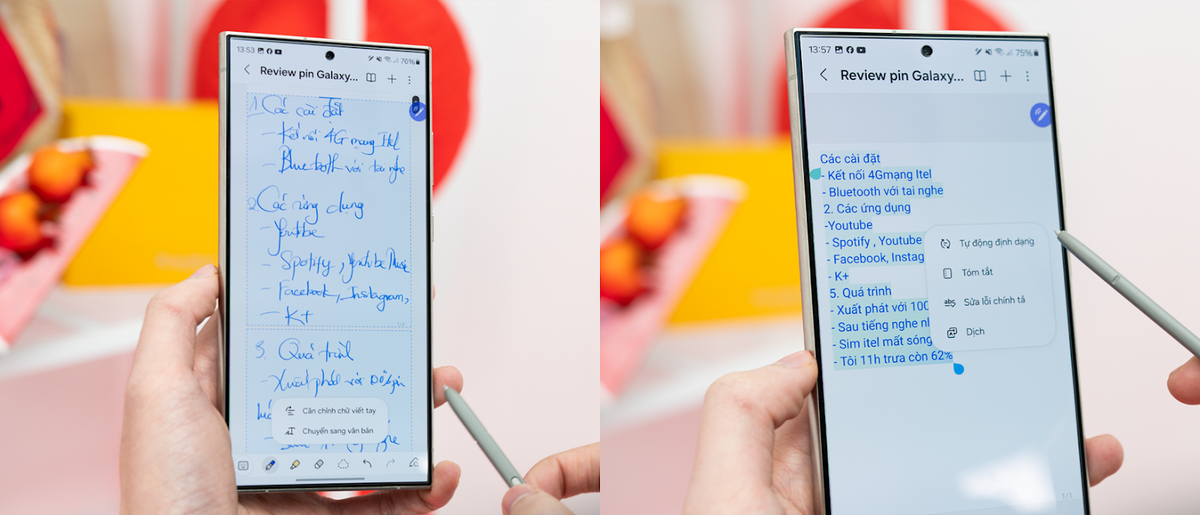 13:53 76%
Review pin Galaxy...
1. Các cài đặt
- Kết nối 4G mạng Itel
- Bluetooth với tai nghe
2. Các ứng dụng
- Youtube
- Spotify, Youtube Music
- Facebook, Instagram,
- K+
1/3
3. Quá trình
- Xuất phát với
Căn chỉnh chữ viết tay
Chuyển sang văn bản
13:57 75%
Review pin Galaxy...
Các cài đặt
- Kết nối 4Gmạng Itel
- Bluetooth với tai nghe
2. Các ứng dụng
-Youtube
- Spotify , Youtube
- Facebook, Instag
- K+
5. Quá trình
- Xuất phát với 100
- Sau tiếng nghe
- Sim itel mất sóng
- Tôi 11h trưa còn 62%
Tự động định dạng
Tóm tắt
Sửa lỗi chính tả
Dịch
1/1